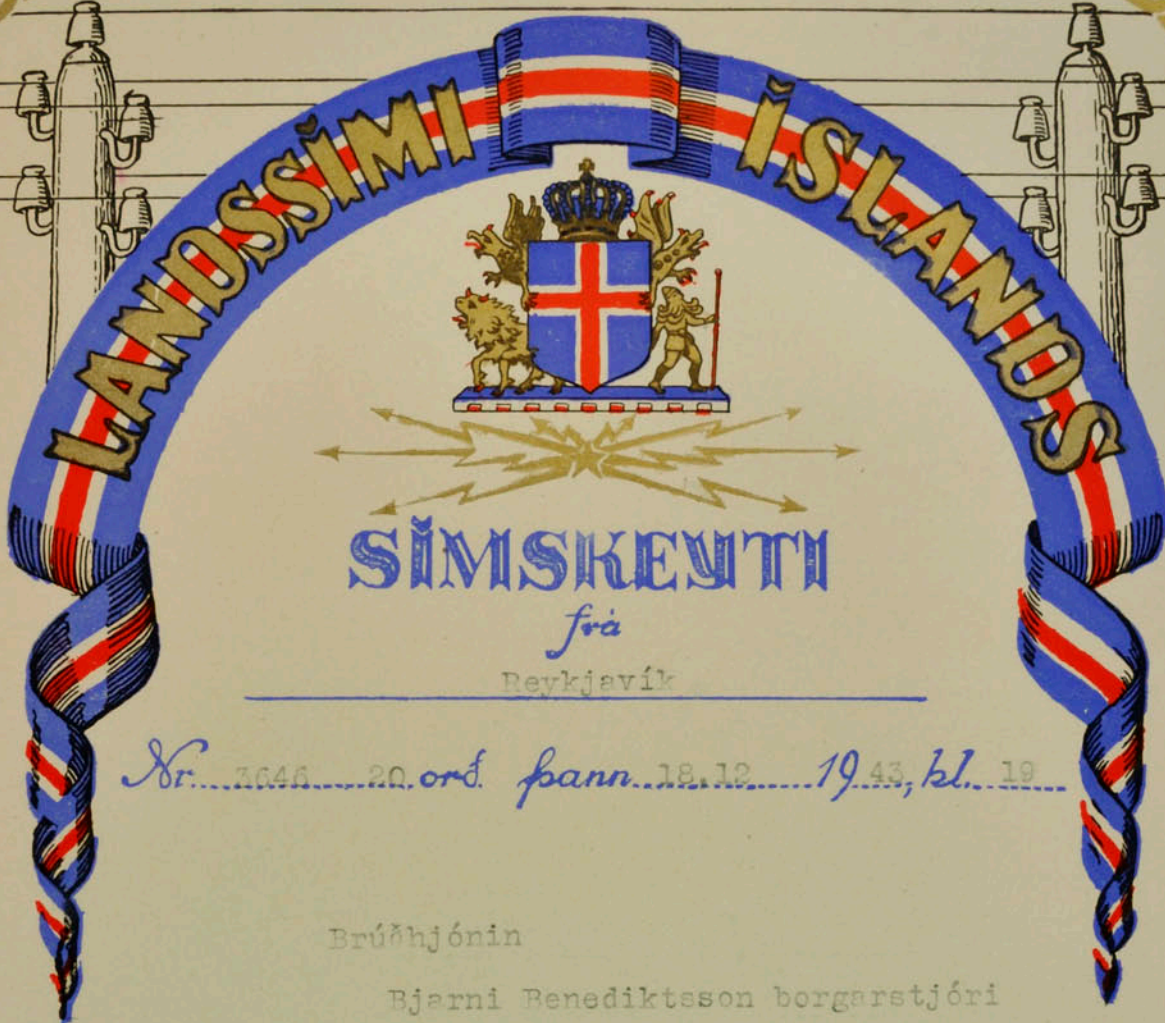 LANDSSÍMI ÍSLANDS
SÍMSKEYTI
frá
Reykjavík
Nr. 3646 20 orð. þann 18.12 19 43, kl. 19
Brúðhjónin
Bjarni Benediktsson borgarstjóri